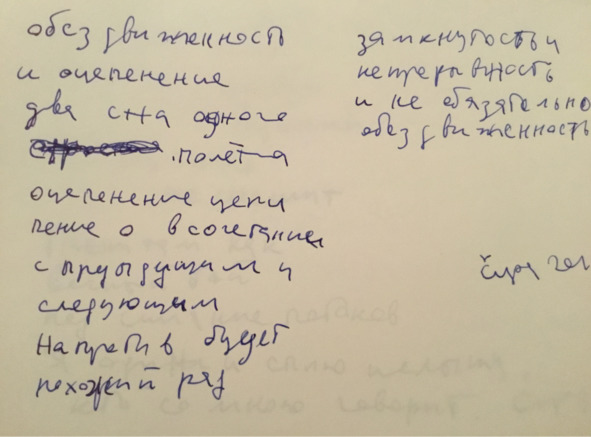 обездвиженность
и оцепенение
два сна одного
полёта
оцепенение цепи
пение о в сочетании
с предыдущим и
следующим
напротив будет
похожий ряз
замкнутость и
непрерывность
и не обязательно
обездвиженность